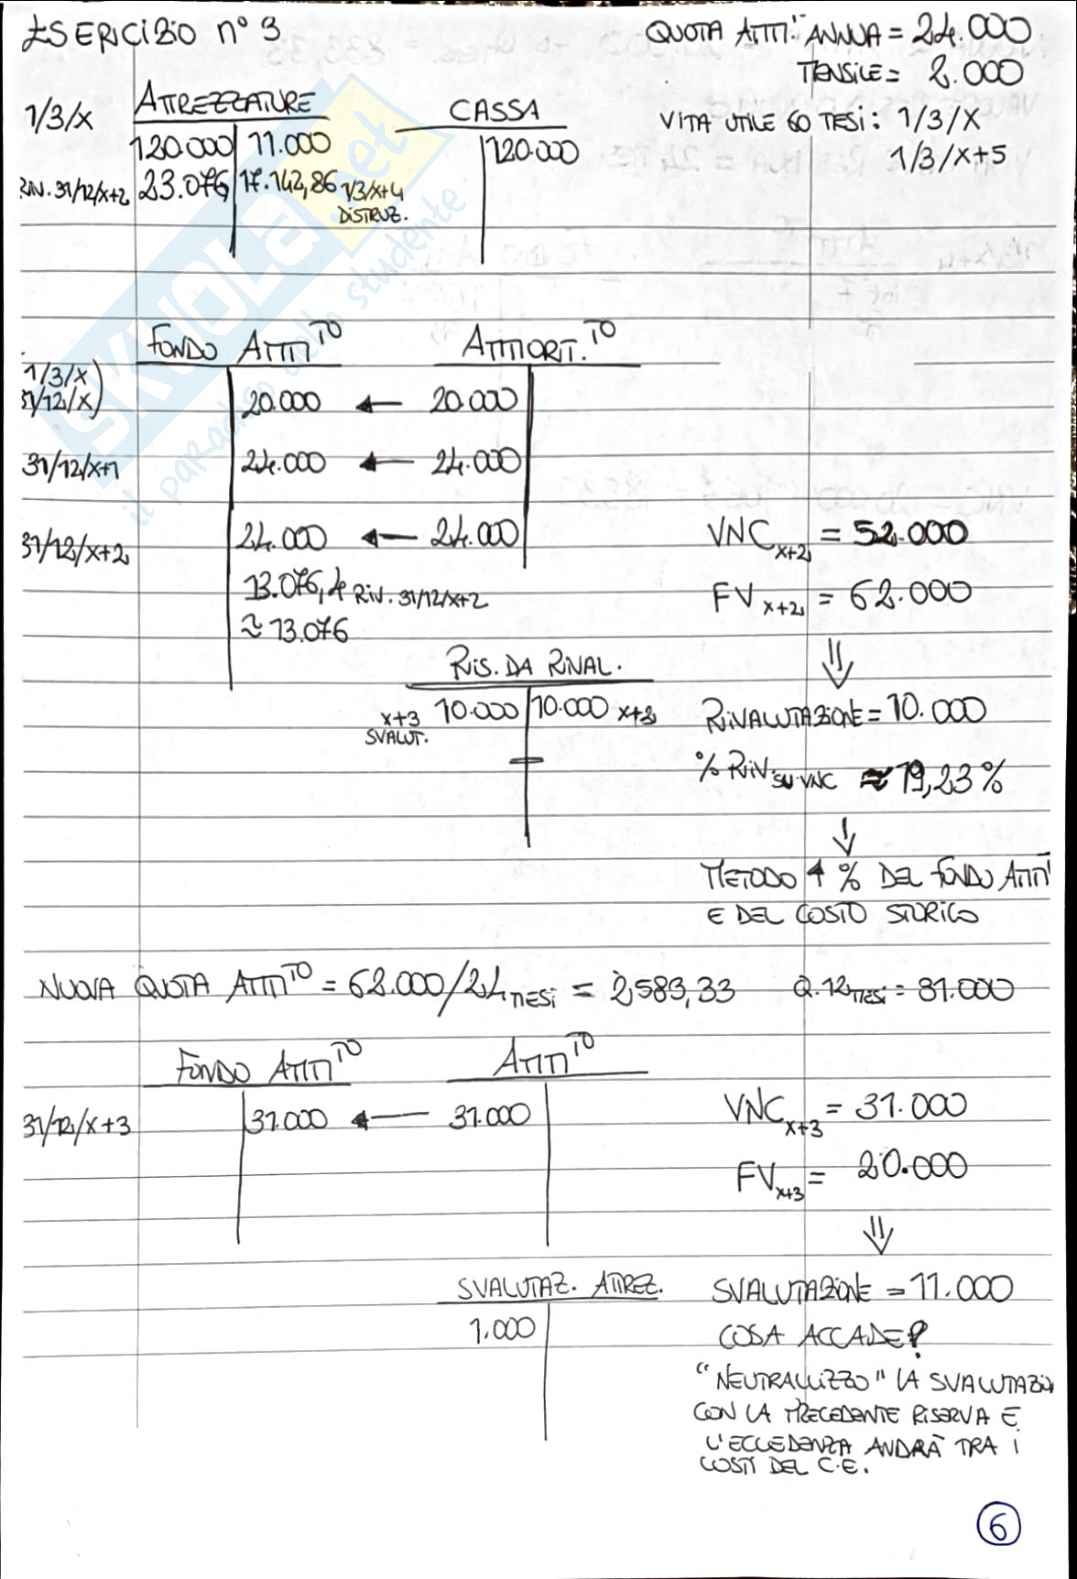 ESERCIZIO n° 3
QUOTA AMM.TO ANNUA = 24.000
MENSILE = 2.000
1/3/X
ATTREZZATURE
CASSA
VITA UTILE 60 MESI: 1/3/X
1/3/X+5
120.000 11.000
120.000
RIV. 31/12/X+2 23.076 17.142,86 1/3/X+4
DISTRUZ.
FONDO AMM TO
AMMORT. TO
1/3/X
31/12/X)
20.000 ← 20.000
31/12/X+1
24.000 ← 24.000
31/12/X+2
24.000 ← 24.000
VNC X+2 = 52.000
13.076,4 RIV. 31/12/X+2
≈ 13.076
FV X+2 = 62.000
⇓
RIS. DA RIVAL.
X+3 10.000 10.000 X+2
SVALUT.
RIVALUTAZIONE = 10.000
% RIV SU VNC ≈ 19,23%
↓
METODO ↑ % DEL FONDO AMM
E DEL COSTO STORICO
NUOVA QUOTA AMM TO = 62.000/24 MESI = 2583,33 Q.12 MESI = 31.000
FONDO AMM TO
AMM TO
31/12/X+3
31.000 ← 31.000
VNC X+3 = 31.000
FV X+3 = 20.000
⇓
SVALUTAZ. ATTREZ.
1.000
SVALUTAZIONE = 11.000
COSA ACCADE?
"NEUTRALIZZO" LA SVALUTAZION
CON LA PRECEDENTE RISERVA E
L'ECCEDENZA ANDRÀ TRA I
COSTI DEL C.E.
6
SKUOLA.net
il paradiso dello studente